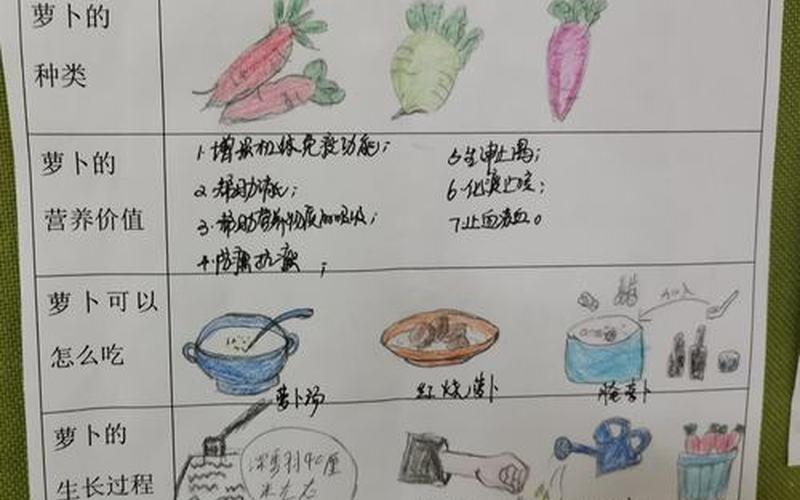 萝卜的
种类
萝卜的
营养价值
1.增强机体免疫功能;
2.帮助消化;
3.帮助营养物质的吸收;
4.防癌抗癌;
5.生津止渴;
6.化痰止咳;
7.止血凉血。
萝卜可以
怎么吃
萝卜汤
红烧萝卜
腌萝卜
萝卜的
生长过程
深度到40厘
米左右